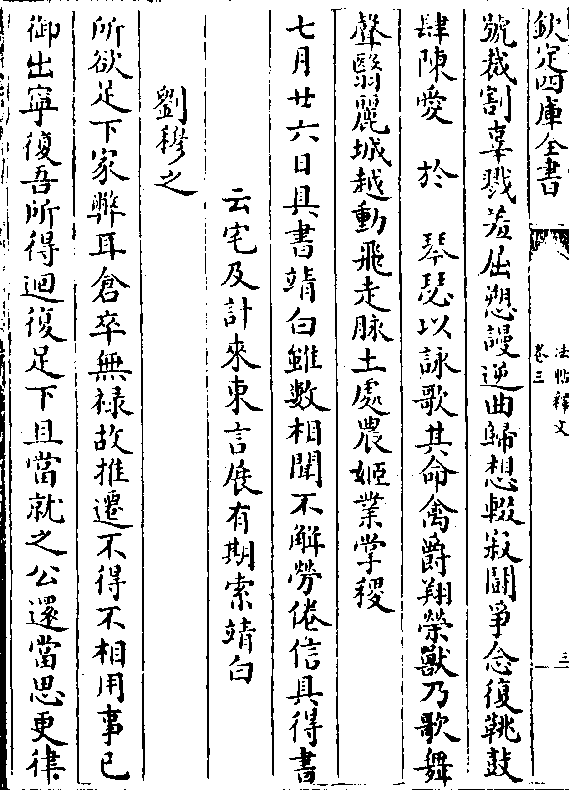 欽定四庫全書
法帖釋文
卷三
三
號裁割辜戮羞屈愬謾逆曲歸想輟寂鬭爭念復鞉鼓
肆陳愛　於　琴瑟以詠歌其命禽爵翔榮獸乃歌舞
聲翳麗城越動飛走脉土處農姬業掌稷
七月廿六日具書靖白雖數相聞不解勞倦信具得書
云宅及計來東言展有期索靖白
劉穆之
所欲足下家弊耳倉卒無祿故推遷不得不相用事已
御出寧復吾所得迴復足下且當就之公還當思更律